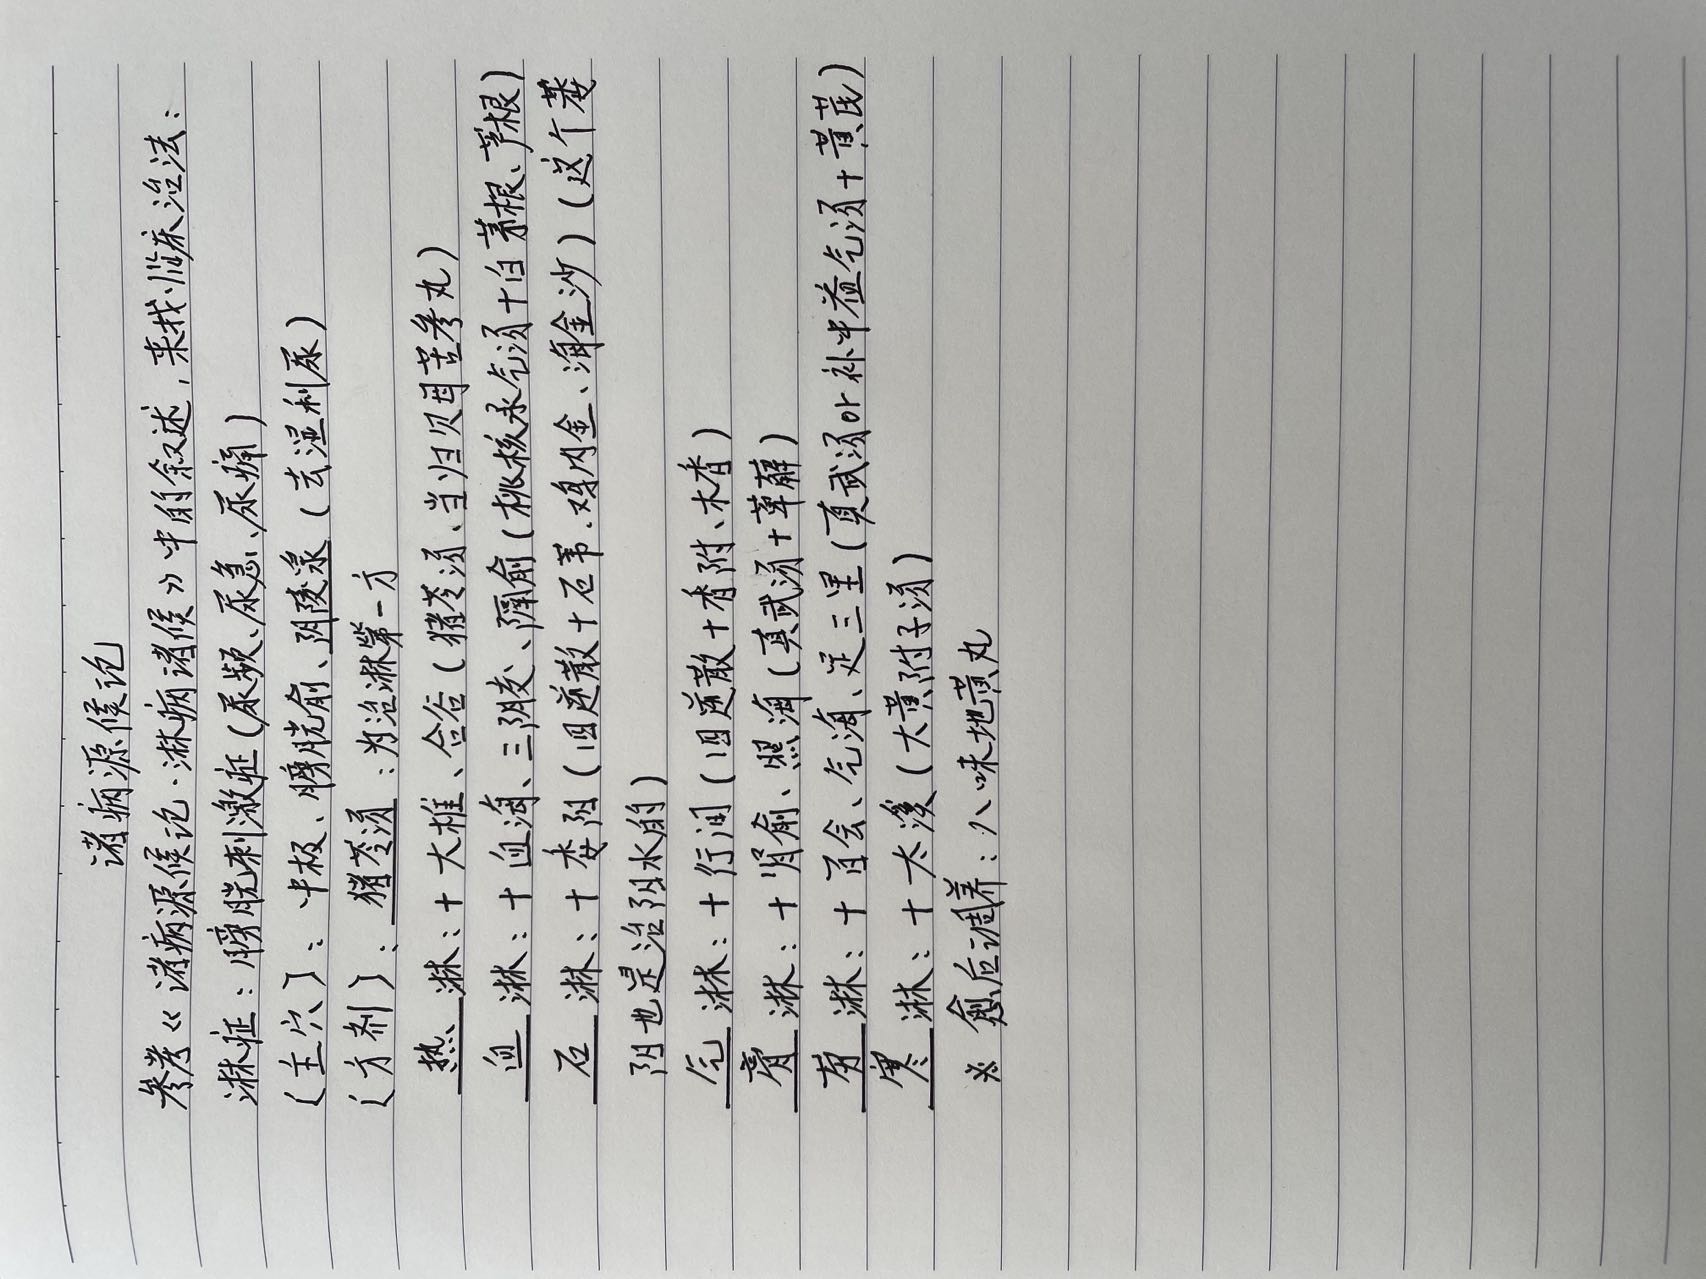 诸病源候论
参考《诸病源候论·淋病诸候》中的叙述,来找临床治法:
淋症:膀胱刺激症(尿频、尿急、尿痛)
(主穴):中极、膀胱俞、阴陵泉(去湿利尿)
(方剂):猪苓汤:为治淋第一方
热淋:+大椎、合谷(猪苓汤、当归贝母苦参丸)
血淋:+血海、三阴交、隔俞(桃核承气汤+白茅根、芦根)
石淋:+委阳(四逆散+石苇、鸡内金、海金沙)(这个委
阳也是治阴水的)
气淋:+行间(四逆散+香附、木香)
膏淋:+肾俞、照海(真武汤+萆薢)
劳淋:+百会、气海、足三里(真武汤or补中益气汤+黄芪)
寒淋:+太溪(大黄附子汤)
※ 愈后调养:八味地黄丸